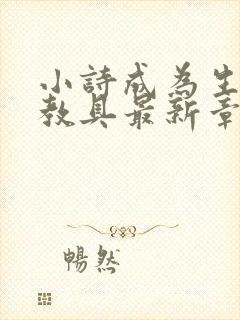 小詩成為生
教具最新章
暢然